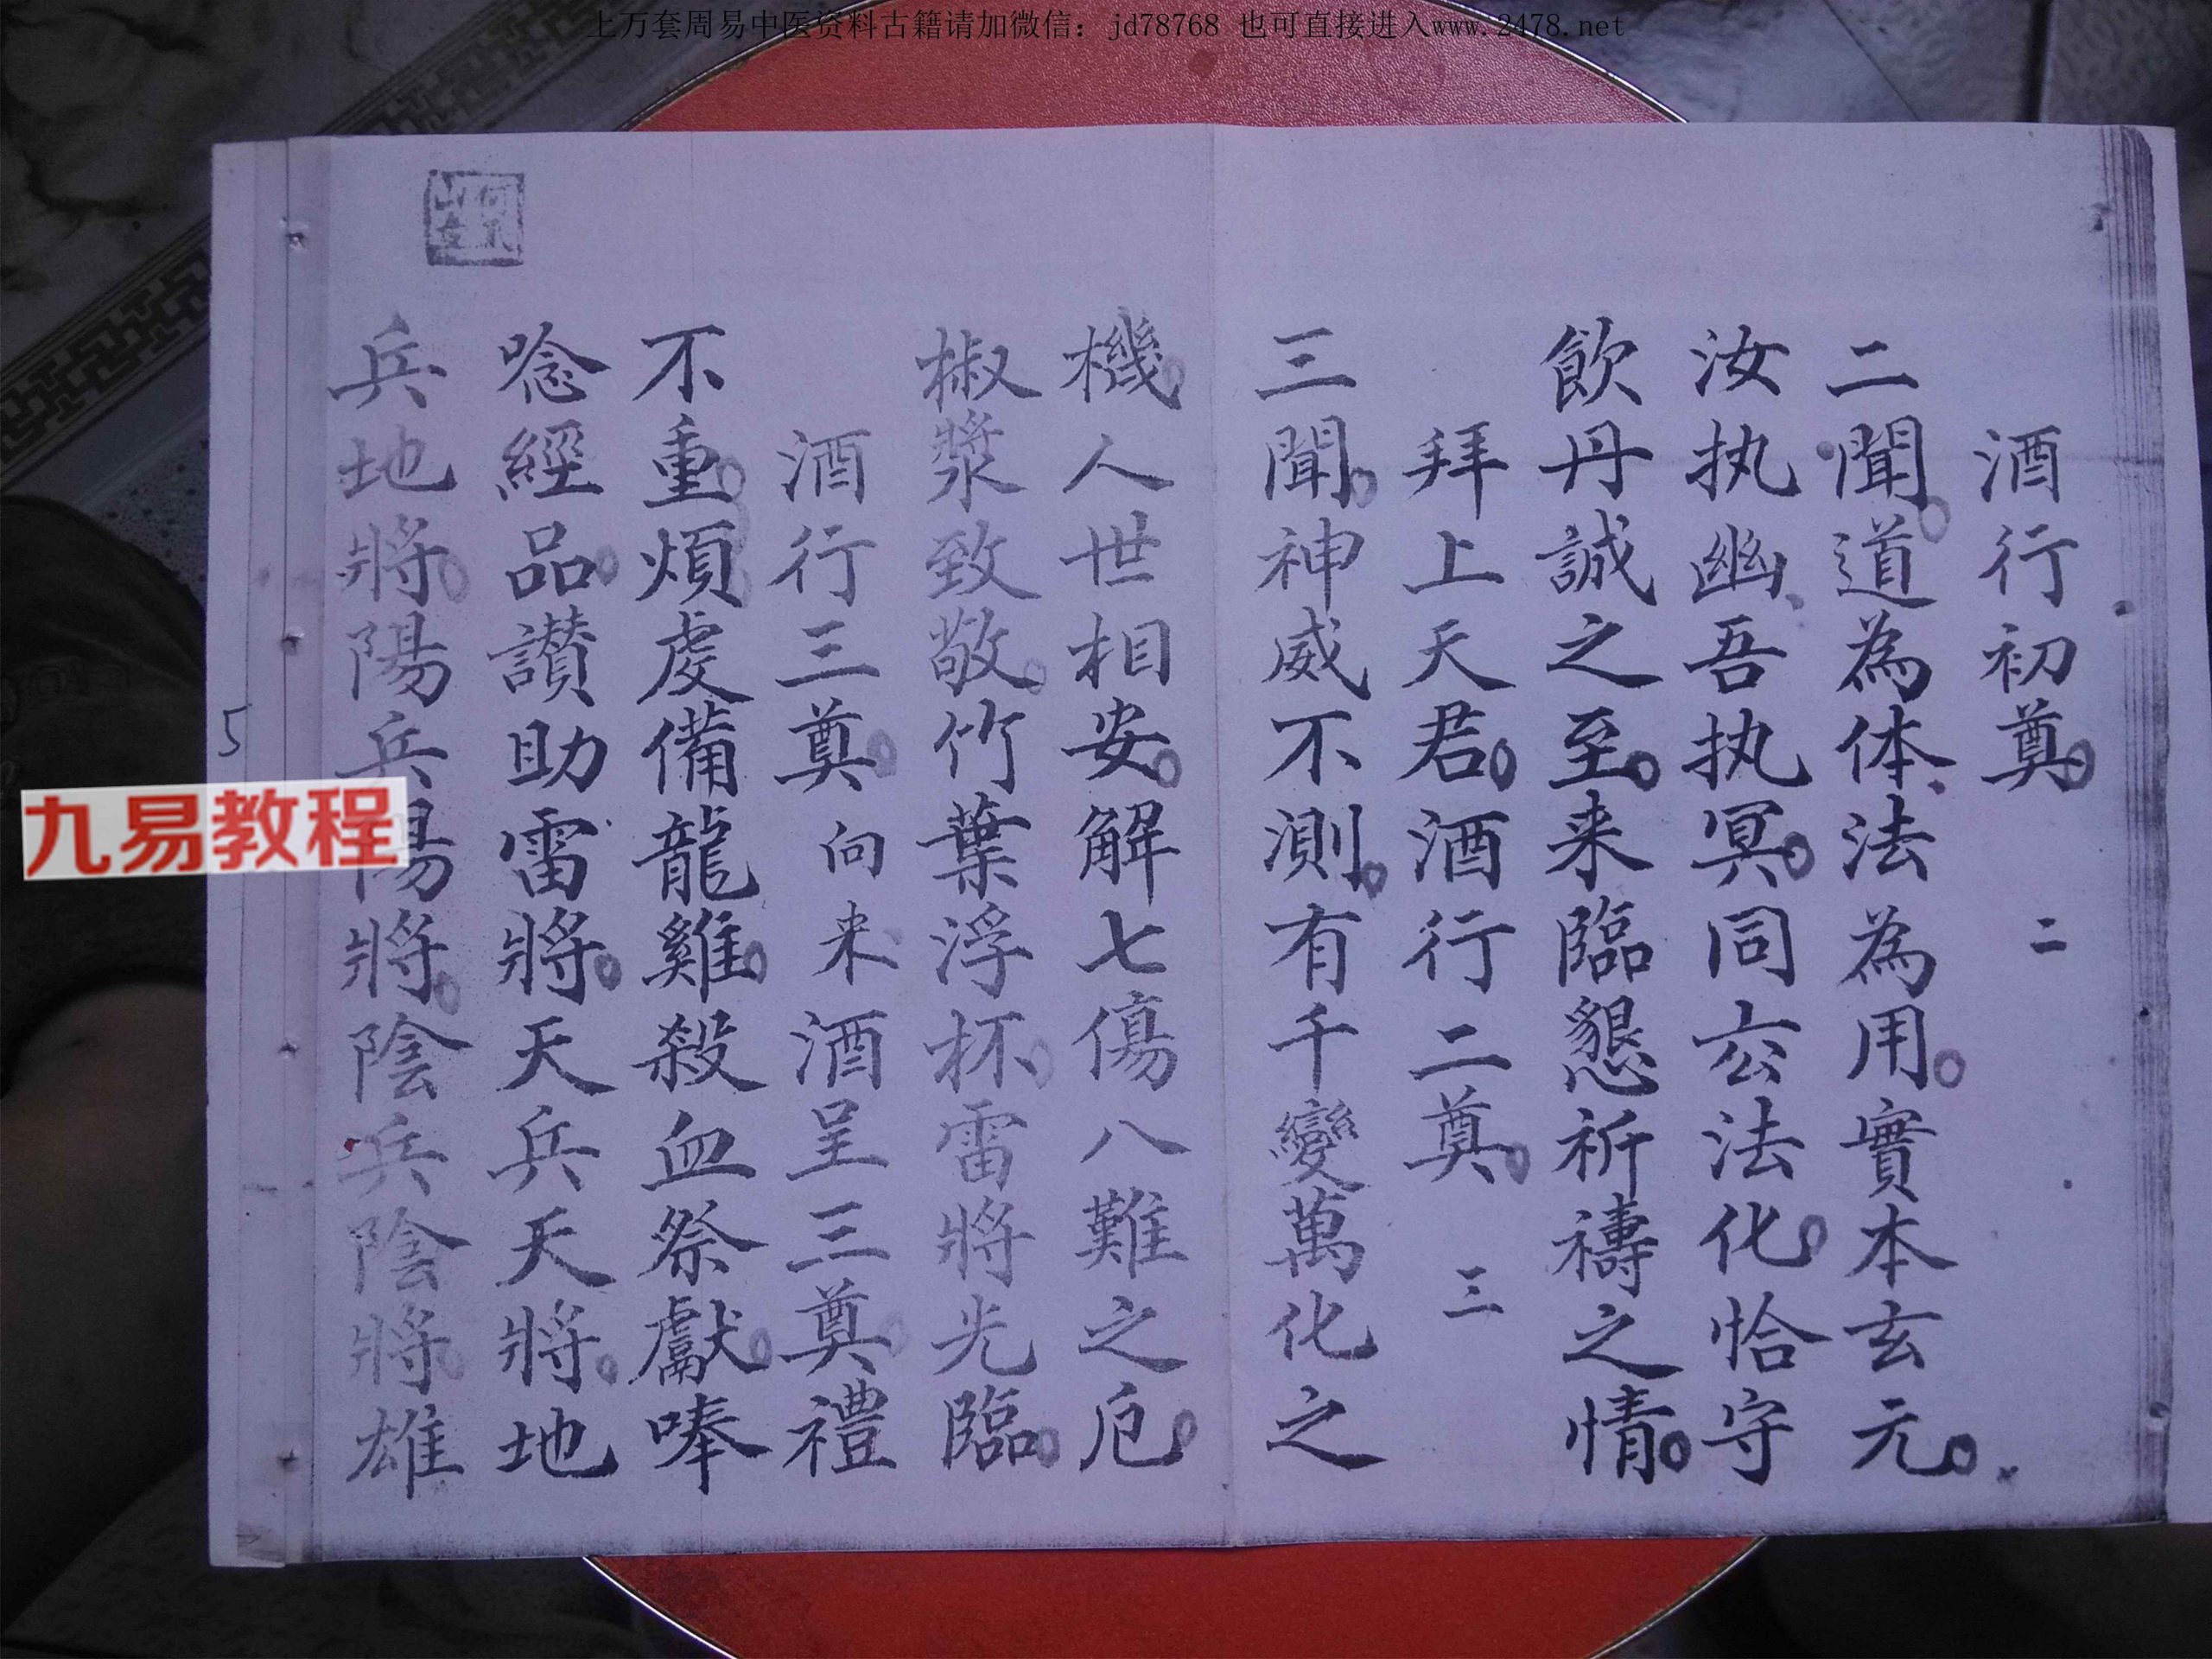 上万套周易中医资料古籍请加微信：jd78768 也可直接进入www.2478.net
酒行初奠。 二
二聞。道為体法為用。實本玄元。
汝执幽吾执冥。同玄法化。恰守
飲丹誠之至。来臨懇祈禱之情。
拜上天君。酒行二奠。 三
三聞。神威不測。有千變萬化之
機。人世相安。解七傷八難之厄。
椒漿致敬。竹葉浮杯。雷將光臨。
酒行三奠。向来酒呈三奠。禮
不重煩。虔備龍雞。殺血祭獻。唪
唸經品。讃助雷將。天兵天將。地
兵地將。陽兵陽將。陰兵陰將。雄
5
九易教程